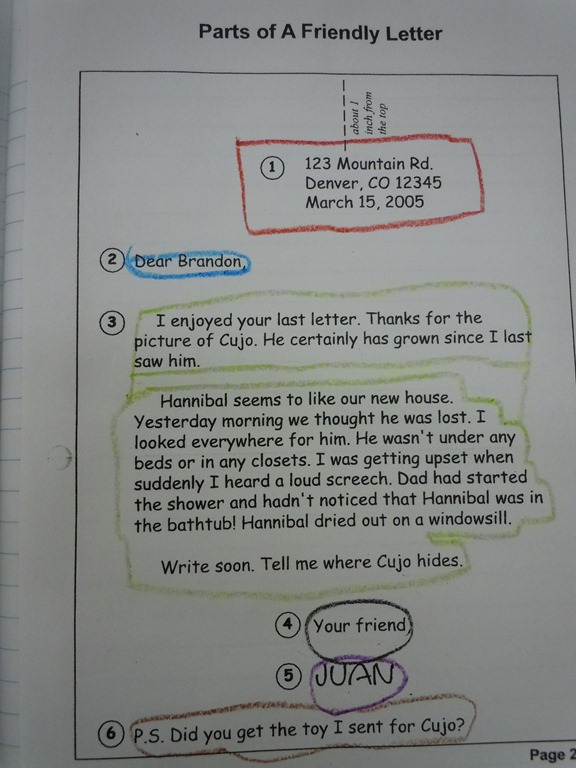 Parts of A Friendly Letter
about 1
inch from
the top
1 123 Mountain Rd.
Denver, CO 12345
March 15, 2005
2 Dear Brandon,
3 I enjoyed your last letter. Thanks for the
picture of Cujo. He certainly has grown since I last
saw him.
Hannibal seems to like our new house.
Yesterday morning we thought he was lost. I
looked everywhere for him. He wasn't under any
beds or in any closets. I was getting upset when
suddenly I heard a loud screech. Dad had started
the shower and hadn't noticed that Hannibal was in
the bathtub! Hannibal dried out on a windowsill.
Write soon. Tell me where Cujo hides.
4 Your friend,
5 JUAN
6 P.S. Did you get the toy I sent for Cujo?
Page 2